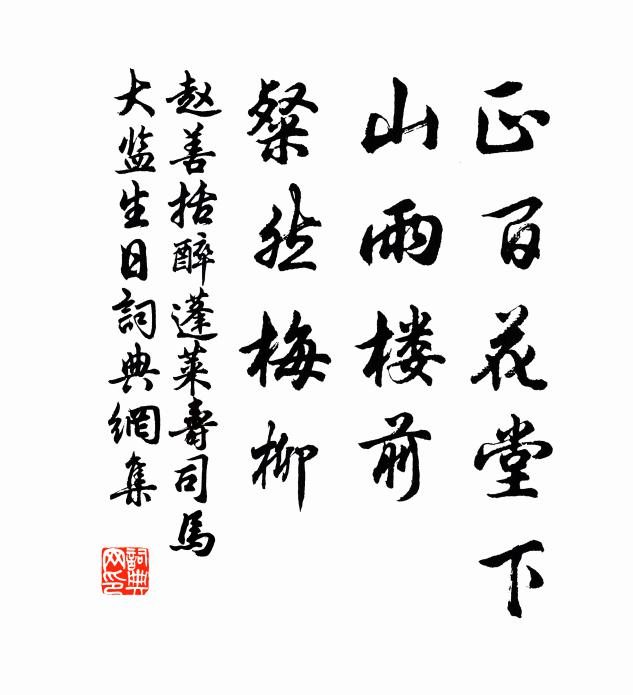 正百花堂下
山雨楼前
粲然梅柳
赵善括醉蓬莱寿司馬
大监生日詞典網集
詞典网印